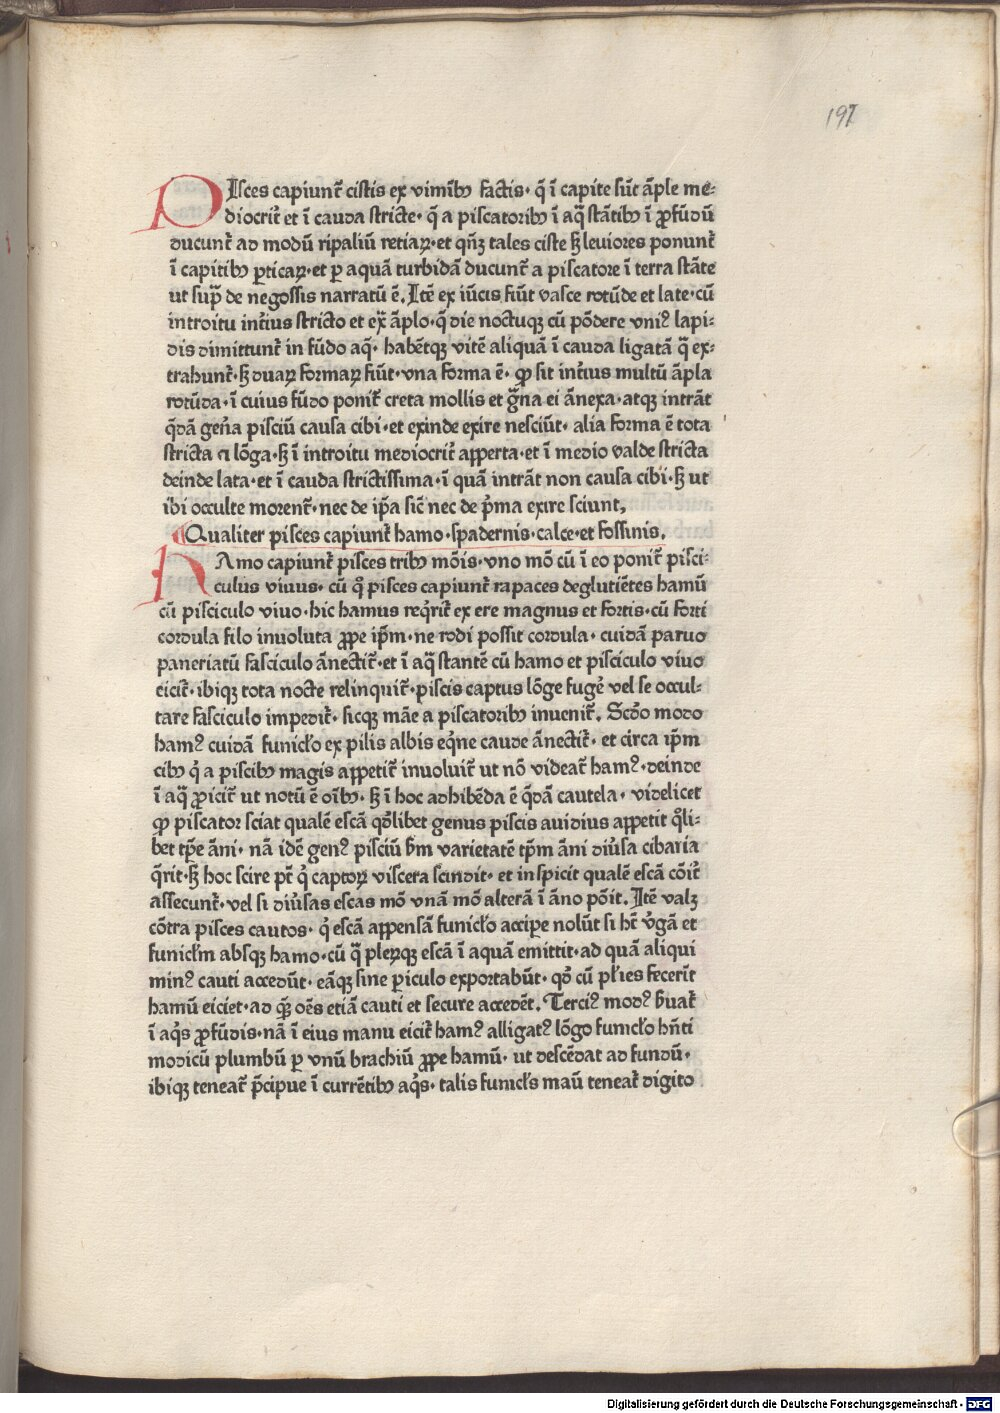 197
PIsces capiunt᷑ cistis ex vimĩbꝫ factis· q̃ ĩ capite sũt ãple me⸗
diocrit᷑ et ĩ cauda stricte· q̃ a piscatoribꝫ ĩ aq̃ stãtibꝫ ĩ ꝓfũdũ
ducunt᷑ ad modũ ripaliũ retiaꝝ·et qñꝫ tales ciste sꝫ leuiores ponunt᷑
ĩ capitibꝫ ꝑticaꝝ·et ꝑ aquã turbidã ducunt᷑ a piscatore ĩ terra stãte
ut sup̃ de negossis narratũ ẽ. Itẽ ex iũcis fiũt vasce rotũde et late·cũ
introitu int᷑ius stricto et ex̃ ãplo·q̃ die noctuqꝫ cũ põdere vniꝰ lapi⸗
dis dimittunt᷑ in fũdo aq̃· habẽtqꝫ vitẽ aliquã ĩ cauda ligatã q̃ ex⸗
trahunt᷑·sꝫ duaꝝ formaꝝ fiũt·vna forma ẽ· ꝙ sit int᷑ius multũ ãpla
rotũda·ĩ cuius fũdo ponit᷑ creta mollis et g̃na ei ãnexa·atqꝫ intrãt
q̃dã geña pisciũ causa cibi·et exinde exire nesciũt· alia forma ẽ tota
stricta ⁊ lõga·sꝫ ĩ introitu mediocrit᷑ apperta·et ĩ medio valde stricta
deinde lata·et ĩ cauda strictissima·ĩ quã intrãt non causa cibi·sꝫ ut
ibi occulte morent᷑·nec de ip̃a sic̃ nec de p̃ma exire sciunt,
¶Qualiter pisces capiunt᷑ hamo·spadernis·calce·et fossinis.
HAmo capiunt᷑ pisces tribꝫ mõis·vno mõ cũ ĩ eo ponit᷑ pisci⸗
culus viuus· cũ q̊ pisces capiunt᷑ rapaces deglutiẽtes hamũ
cũ pisciculo viuo·hic hamus req̃rit᷑ ex ere magnus et fortis·cũ forti
cordula filo inuoluta ꝓpe ip̃m·ne rodi possit cordula· cuidã paruo
paneriatũ fasciculo ãnectit᷑·et ĩ aq̃ stantẽ cũ hamo et pisciculo viuo
eicit᷑·ibiqꝫ tota nocte relinquit᷑·piscis captus lõge fuge᷑ vel se occul⸗
tare fasciculo impedit᷑· sicqꝫ mãe a piscatoribꝫ inuenit᷑. Scd̃o modo
hamꝰ cuidã funicl̃o ex pilis albis eq̃ne caude ãnectit᷑· et circa ip̃m
cibꝫ q̓ a piscibꝫ magis appetit᷑ inuoluit᷑ ut nõ videat᷑ hamꝰ·deinde
ĩ aq̃ ꝓicit᷑ ut notũ ẽ oĩbꝫ· sꝫ ĩ hoc adhibẽda ẽ q̃dã cautela· videlicet
ꝙ piscator sciat qualẽ escã qd̃libet genus piscis auidius appetit q̃li⸗
bet tp̃e ãni· nã idẽ genꝰ pisciũ ẜm varietatẽ tp̃m ãni diũsa cibaria
q̃rit·sꝫ hoc scire pt̃ q̓ captoꝝ viscera scindit· et inspicit qualẽ escã cõit᷑
assecunt᷑·vel si diũsas escas mõ vnã mõ alterã ĩ ãno põit. Itẽ valꝫ
cõtra pisces cautos· q̓ escã appensã funicl̃o accipe nolũt si ht̃ v̓gã et
funicl̃m absqꝫ hamo·cũ q̃ pleꝝqꝫ escã ĩ aquã emittit·ad quã aliqui
minꝰ cauti accedũt· eãqꝫ sine ꝑiculo exportabũt· qd̃ cũ pl̃ies fecerit
hamũ eiciet·ad q̃ꝫ oẽs etiã cauti et secure accedẽt. Terciꝰ modꝰ ẜuat᷑
ĩ aq̓s ꝓfũdis·nã ĩ eius manu eicit᷑ hamꝰ alligatꝰ lõgo funicl̃o hñti
modicũ plumbũ ꝑ vnũ brachiũ ꝓpe hamũ· ut descẽdat ad fundũ·
ibiqꝫ teneat᷑ p̃cipue ĩ currẽtibꝫ aq̓s· talis funicl̃s maũ teneat᷑ digito
Digitalisierung gefördert durch die Deutsche Forschungsgemeinschaft - DFG